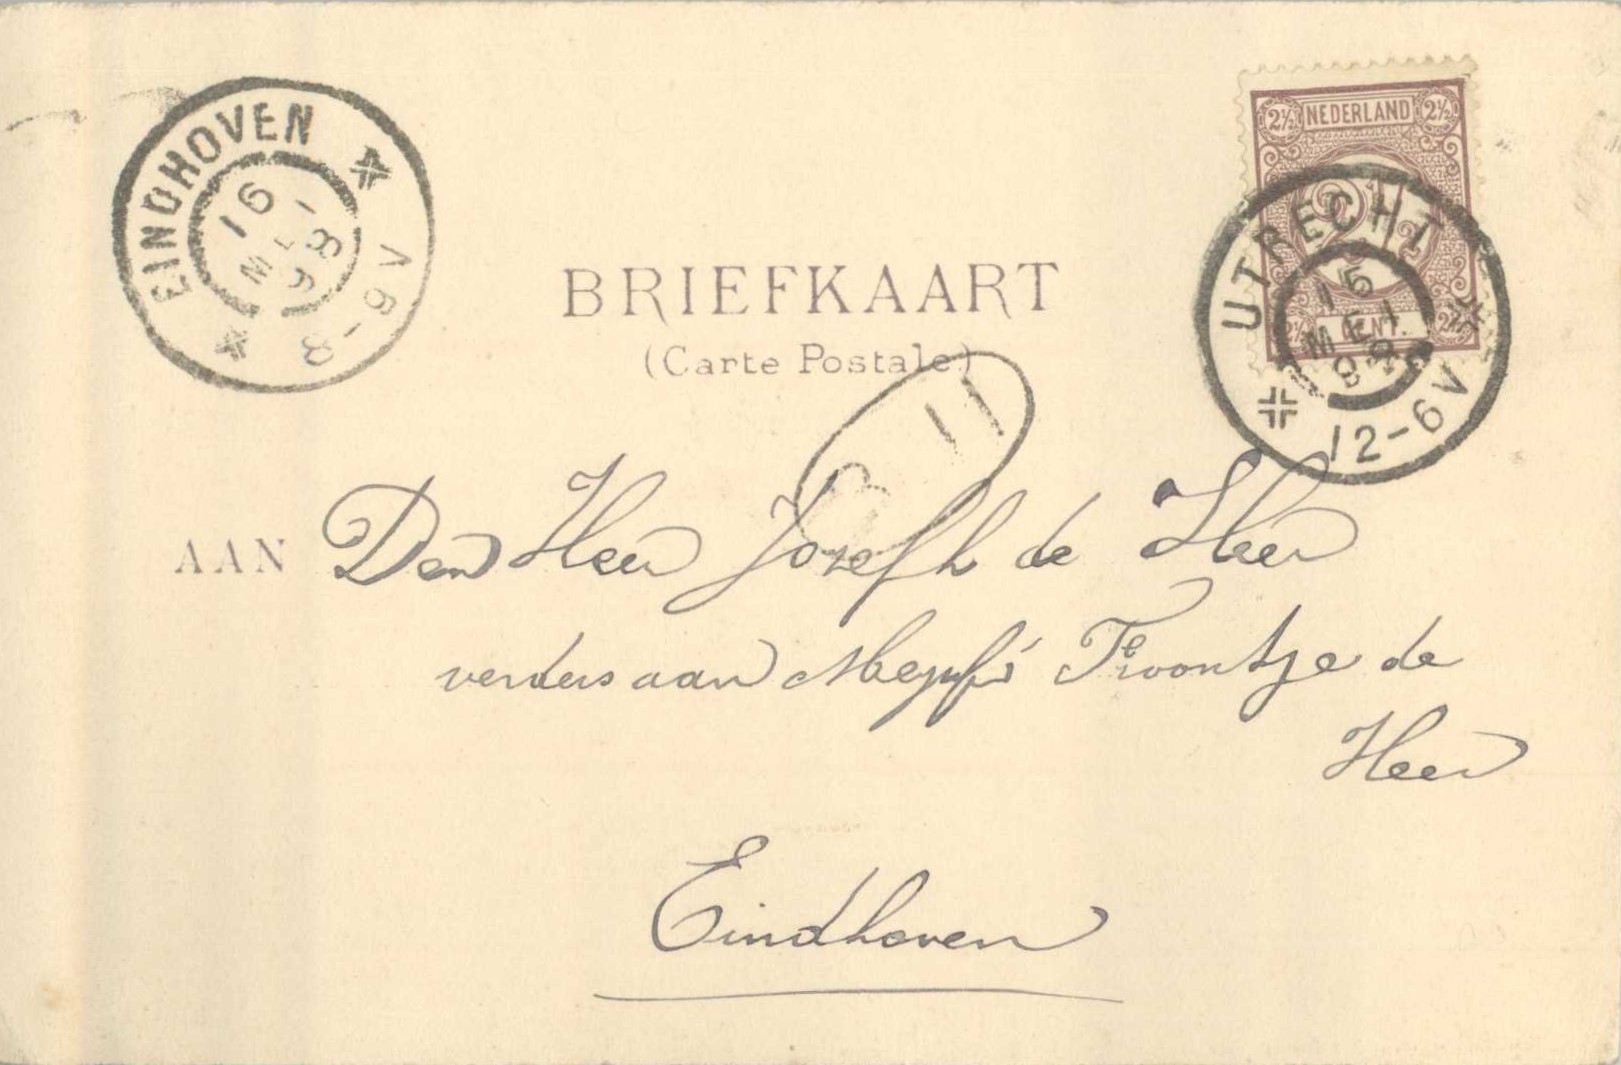 EINDHOVEN
16
MEI
98
6-8V
NEDERLAND
2½ 2½
2½
CENT.
UTRECHT
16
MEI
98
12-6V
BRIEFKAART
(Carte Postale)
B II
AAN Den Heer Jozefh de Heer
verders aan Mejufr Troontje de
Heer
Eindhoven